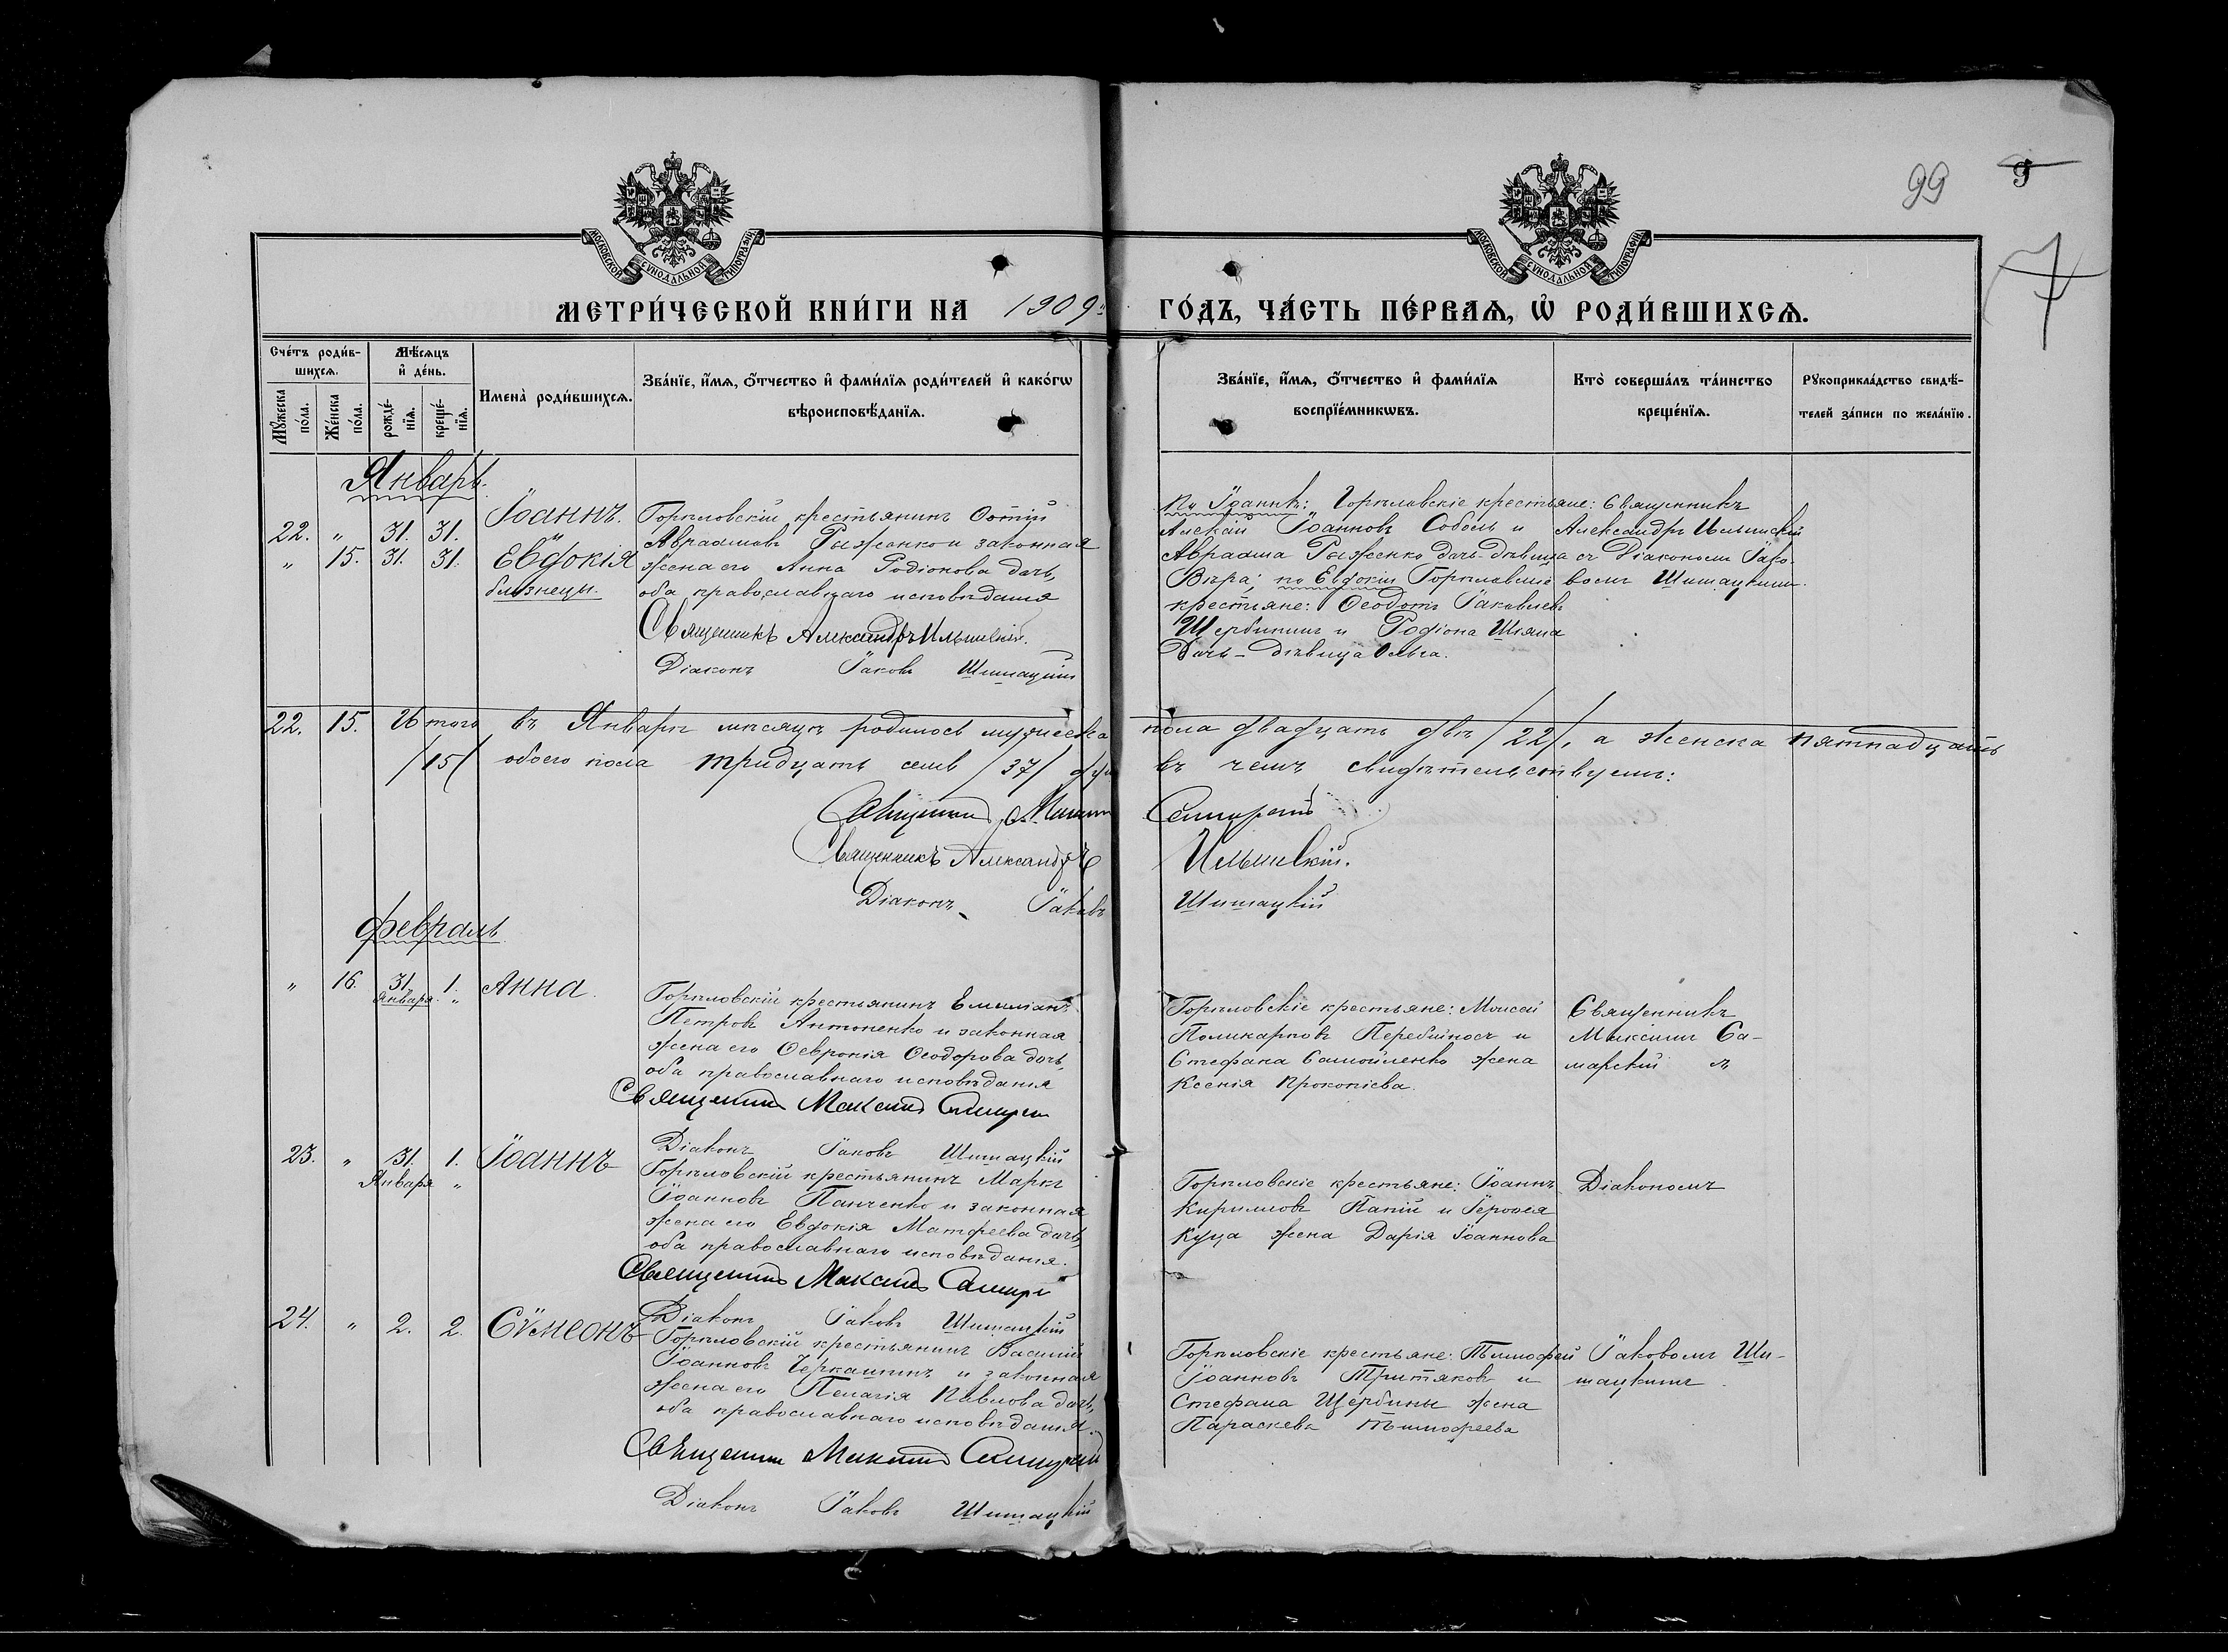 99 9
7
МОСКОВСКОЙ СѴНОДАЛЬНОЙ ТИПОГРАФІИ
МОСКОВСКОЙ СѴНОДАЛЬНОЙ ТИПОГРАФІИ
МЕТРИ́ЧЕСКОЙ КНИ́ГИ НА 1909 ГО́ДЪ, ЧА́СТЬ ПЕ́РВАѦ, Ѡ҆ РОДИ́ВШИХСѦ.
Сче́тъ роди́в-
шихсѧ.
Мꙋ́жеска по́ла.
Же́нска по́ла.
Мѣ́сѧцъ
и҆ де́нь.
рожде́-
нїѧ.
креще́-
нїѧ.
Имена̀ роди́вшихсѧ.
Зва́нїе, и҆́мѧ, ѻ҆́тчество и҆ фами́лїѧ роди́телей и҆ како́гѡ
вѣроисповѣ́данїѧ.
Зва́нїе, и҆́мѧ, ѻ҆́тчество и҆ фами́лїѧ
воспрїе́мникѡвъ.
Кто̀ соверша́лъ та́инство
креще́нїѧ.
Рꙋкоприкла́дство свидѣ́-
телей за́писи по жела́нїю.
Январь.
22. " 31. 31. Іоаннъ.
" 15. 31. 31. Евдокія
близнецы.
Горѣловскій крестьянинъ Фотій
Авраамовъ Рыженко и законная
жена его Анна Родіонова дочь,
оба православнаго исповѣданія
Священникъ Александръ Ильинскій.
Діаконъ Іаковъ Шишацкій
По Іоаннѣ: Горѣловскіе крестьяне:
Алексій Іоанновъ Соболь и
Авраама Рыженко дочь-дѣвица
Вѣра; по Евдокіи Горѣловскіе
крестьяне: Ѳеодотъ Іаковлевъ
Щербининъ и Родіона Шляха
Дочь-дѣвица Ольга.
Священникъ
Александръ Ильинскій
съ Діакономъ Іако-
вомъ Шишацкимъ.
22. 15. Итого въ Январѣ мѣсяцѣ родилось мужеска пола двадцать два /22/, а женска пятнадцать
/15/ обоего пола тридцать семь /37/ душ въ чемъ свидѣтельствуемъ:
Священникъ Максимъ Самарскій
Священникъ Александръ Ильинскій.
Діаконъ Іаковъ Шишацкій
Февраль
" 16. 31. 1. Анна.
Января "
Горѣловскій крестьянинъ Емиліанъ
Петровъ Антоненко и законная
жена его Ѳевронія Ѳеодорова дочь,
оба православнаго исповѣданія
Священникъ Максимъ Самарскій
Діаконъ Іаковъ Шишацкій
Горѣловскіе крестьяне: Моисей
Поликарповъ Перебийносъ и
Стефана Самойленко жена
Ксенія Прокопіева.
Священникъ
Максимъ Са-
марскій
23. " 31. 1. Іоаннъ
Января "
Горѣловскій крестьянинъ Маркъ
Іоанновъ Панченко и законная
жена его Евдокія Матфеева дочь,
оба православнаго исповѣданія.
Священникъ Максимъ Самарскій
Діаконъ Іаковъ Шишацкій
Горѣловскіе крестьяне: Іоаннъ
Кирилловъ Папій и Іероѳея
Куца жена Дарія Іоаннова
Діакономъ
24. " 2. 2. Сѵмеонъ
Горѣловскій крестьянинъ Василій
Іоанновъ Черкашинъ и законная
жена его Пелагія Павлова дочь,
оба православнаго исповѣданія.
Священникъ Максимъ Самарскій
Діаконъ Іаковъ Шишацкій
Горѣловскіе крестьяне: Тимофей
Іоанновъ Третяковъ и
Стефана Щербины жена
Параскева Тимофеева
Іаковомъ Ши-
шацкимъ